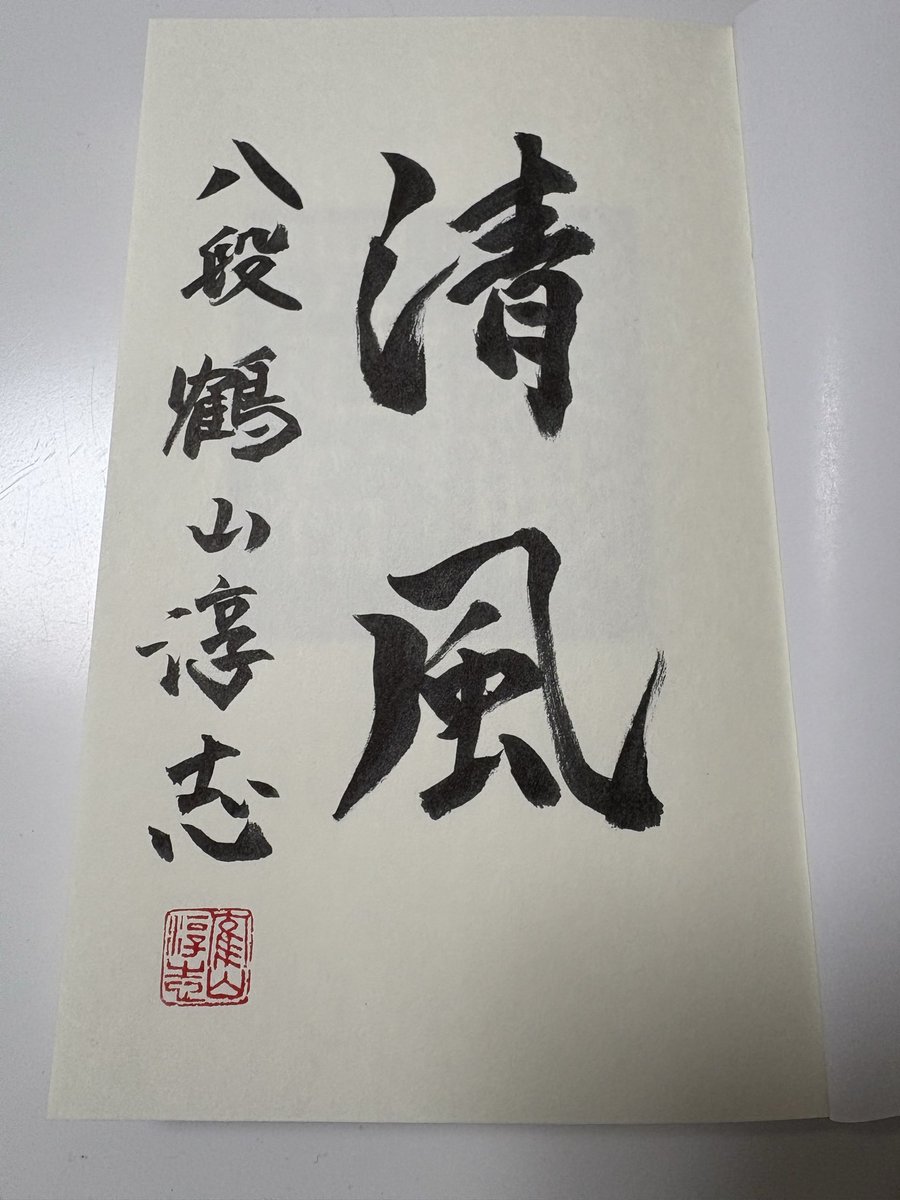 清風
八段 鶴山淳志
鶴山
淳志